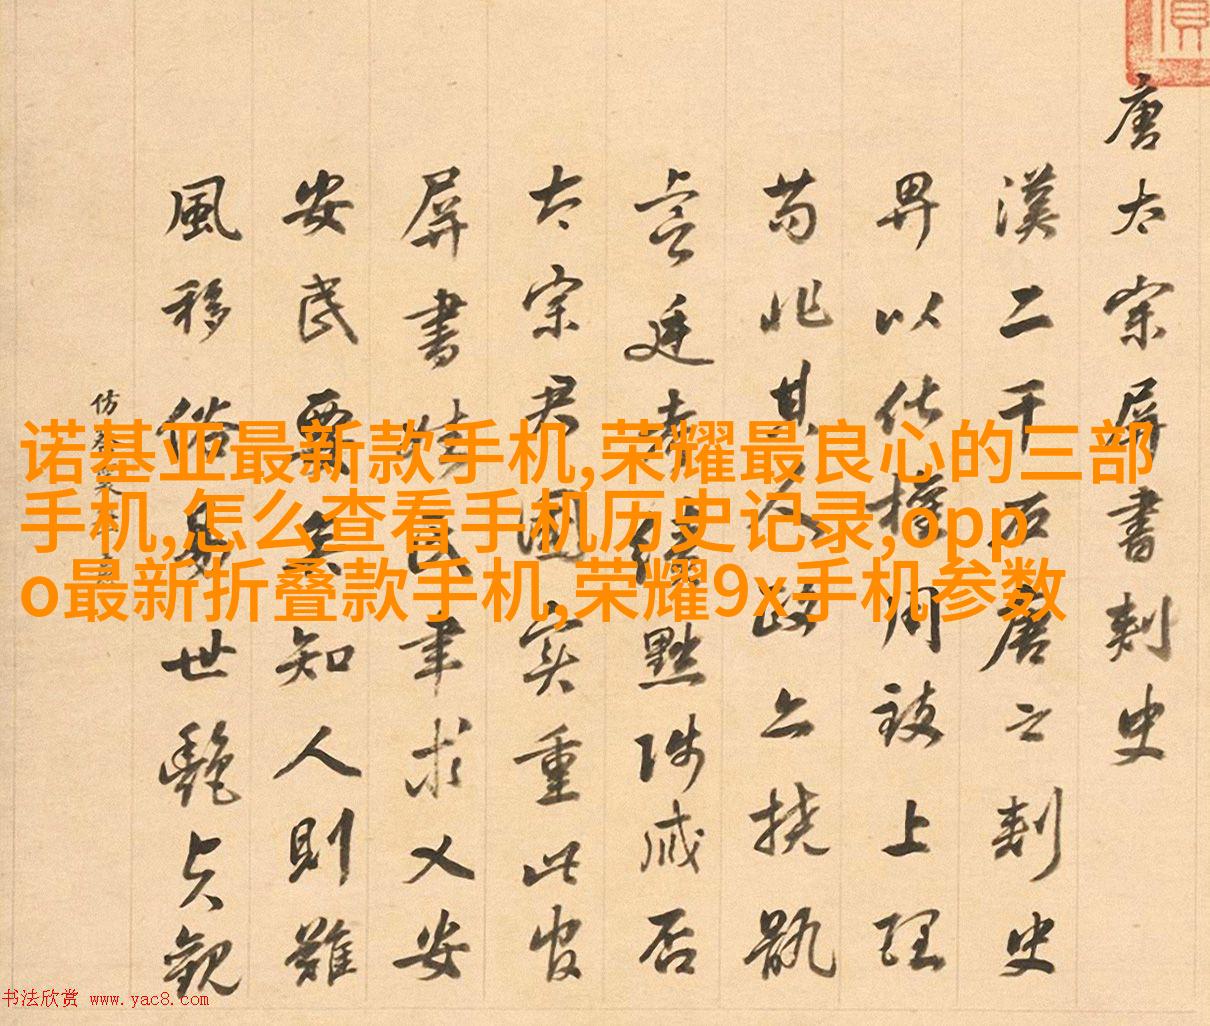 唐太宗屏書刺史
漢二千石唐之刺史
畀以化權用致上理
苟非其人政亦撓骫
廷黜陟否
太宗君國實重此官
屏書聿求乂安
安民要矣知人則難
風移俗易世艷貞觀
仿
诺基亚最新款手机,荣耀最良心的三部
手机,怎么查看手机历史记录,opp
o最新折叠款手机,荣耀9x手机参数
书法欣赏 www.yac8.com